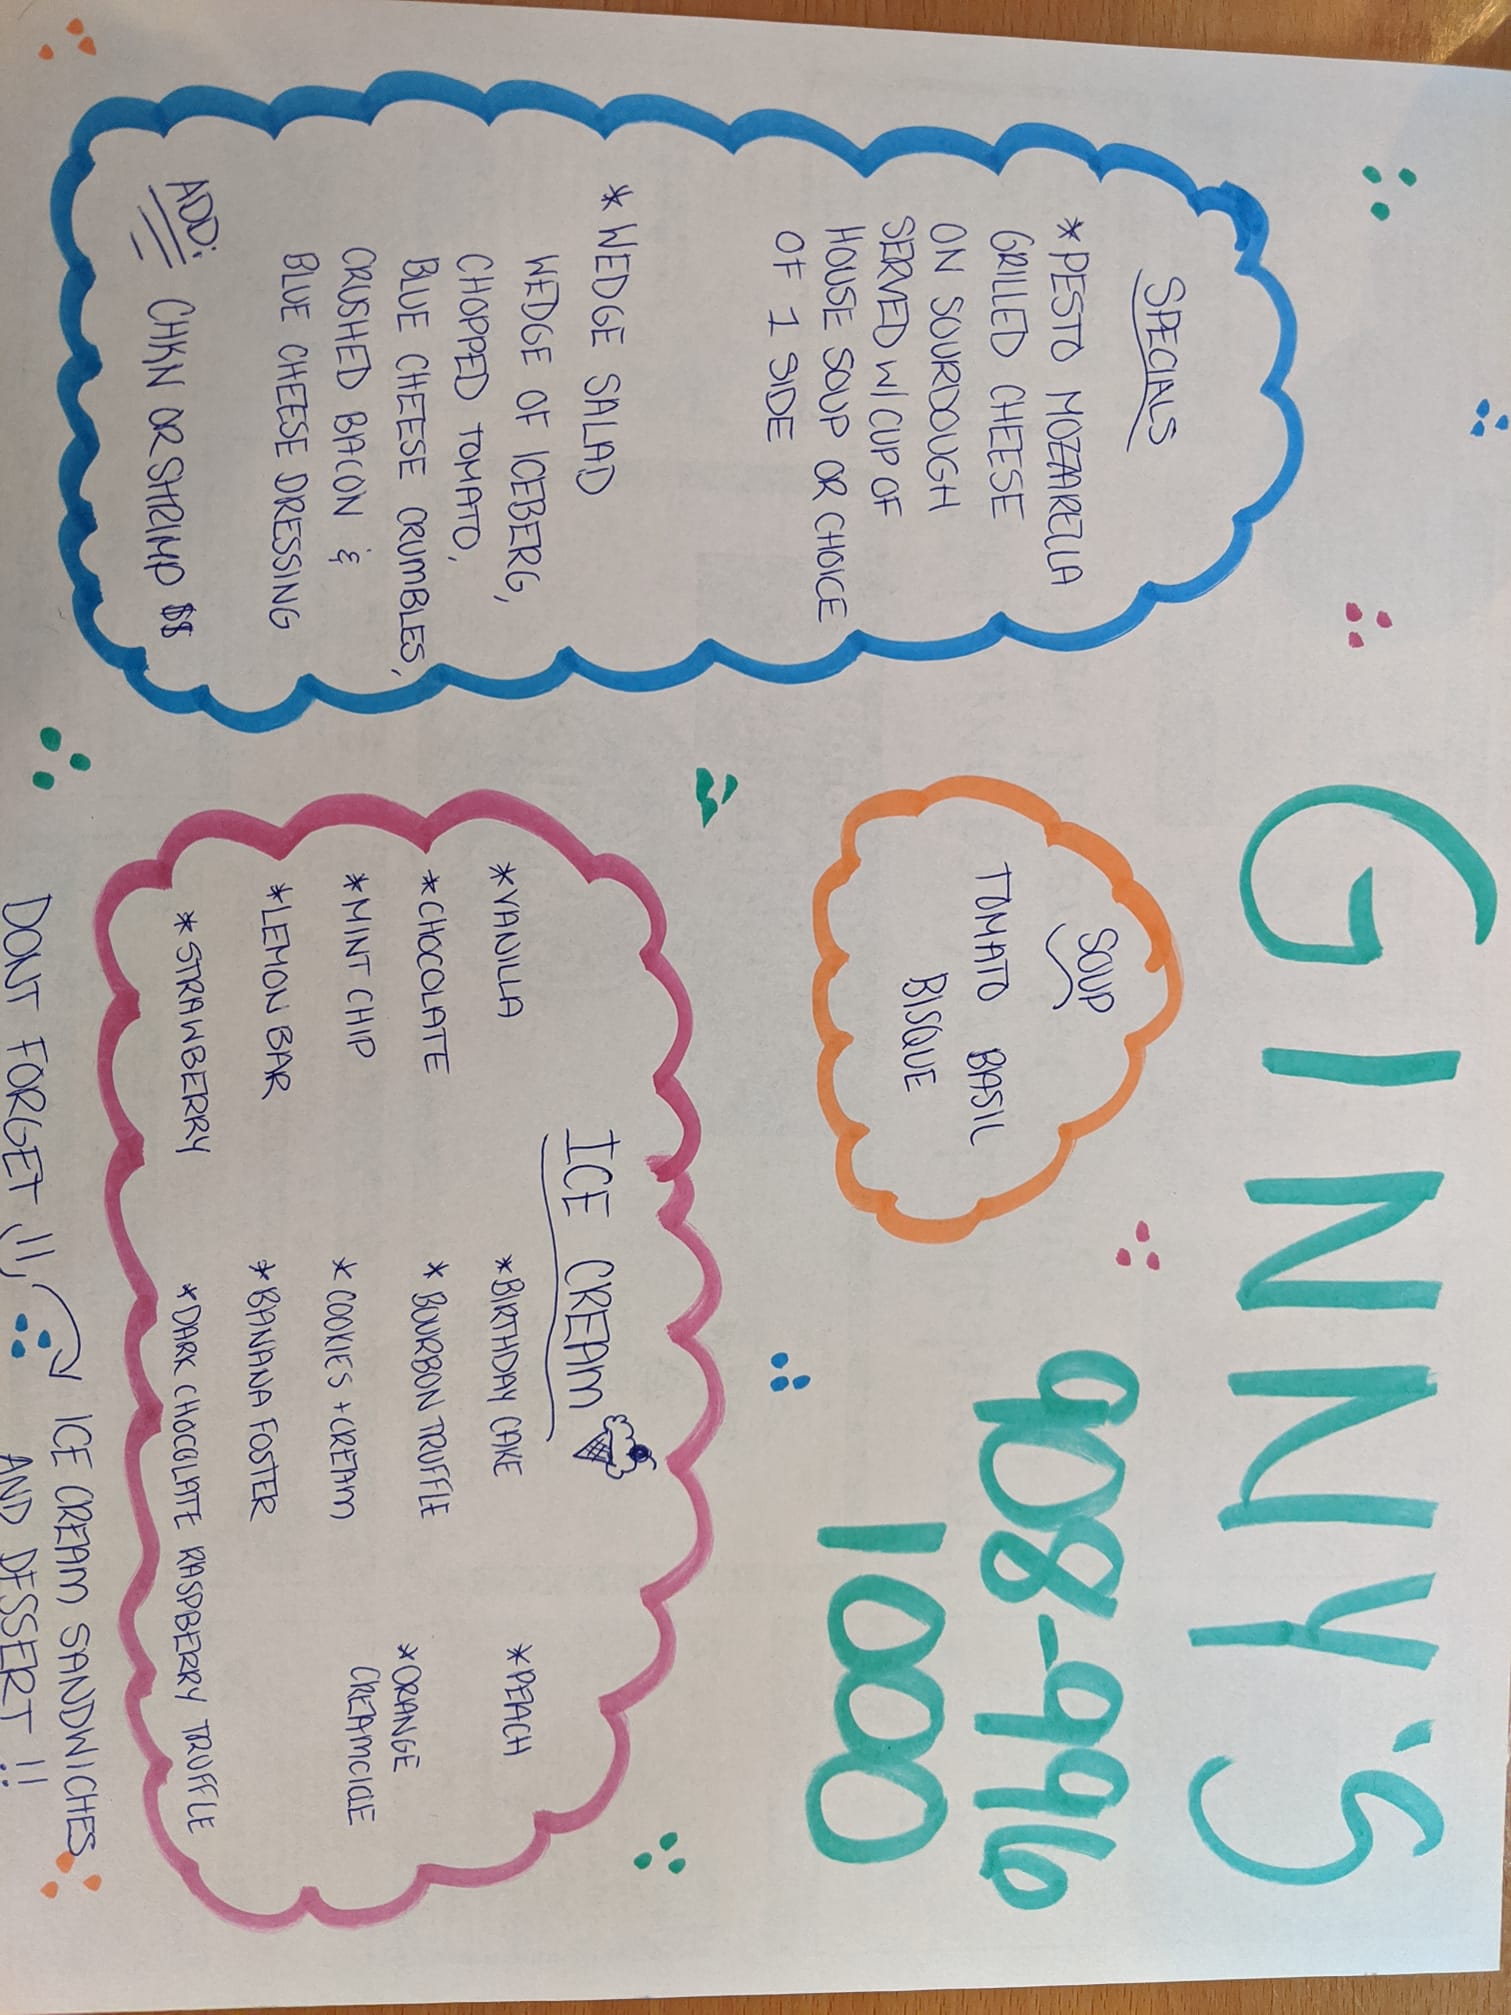 GINNY'S
908-996
1000
SPECIALS
* PESTO MOZAARELLA
GRILLED CHEESE
ON SOURDOUGH
SERVED W/ CUP OF
HOUSE SOUP OR CHOICE
OF 1 SIDE
* WEDGE SALAD
WEDGE OF ICEBERG,
CHOPPED TOMATO,
BLUE CHEESE CRUMBLES,
CRUSHED BACON &
BLUE CHEESE DRESSING
ADD: CHKN OR SHRIMP $8
SOUP
TOMATO BASIL
BISQUE
ICE CREAM
* VANILLA
* CHOCOLATE
* MINT CHIP
* LEMON BAR
* STRAWBERRY
* BIRTHDAY CAKE
* BOURBON TRUFFLE
* COOKIES + CREAM
* BANANA FOSTER
* DARK CHOCOLATE RASPBERRY TRUFFLE
* PEACH
* ORANGE
CREAMCICLE
DONT FORGET !!,
ICE CREAM SANDWICHES
AND DESSERT !!